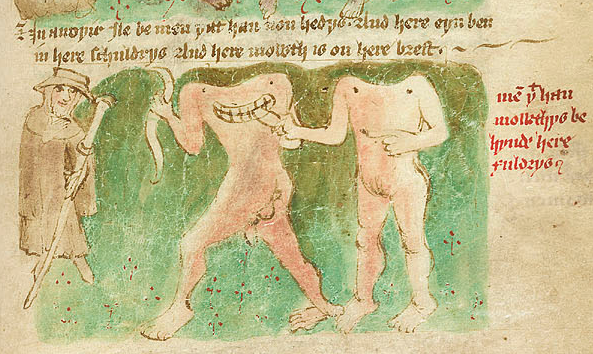 In anoþir Ile be men þat han non hedys. And here eyn ben
in here schuldrys And here mowth is on here brest.
mē þt han
mowthys be
hynde here
schuldrys